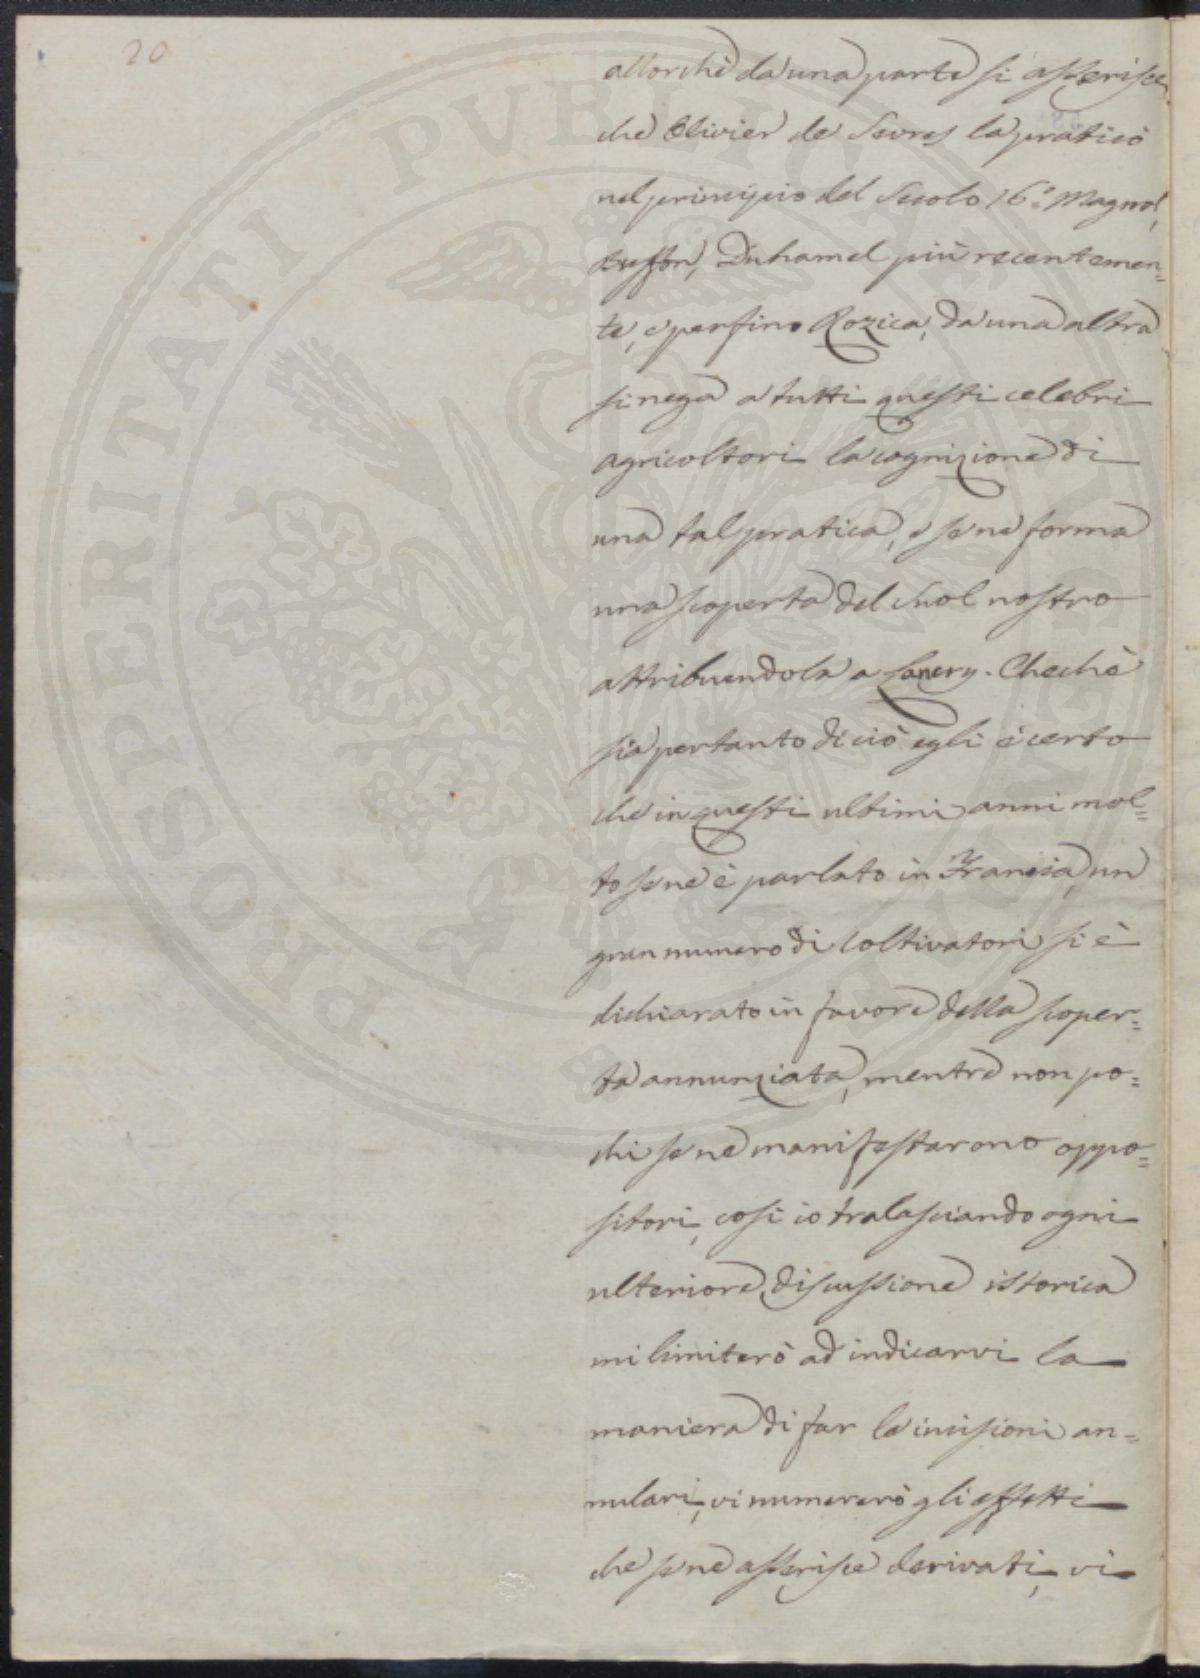 20
allorchè da una parte si asserisce
che Olivier de Sevres la praticò
nel principio del Secolo 16.° Magnol,
Buffon, Duhamel più recentemen=
te, e perfino Rozica, da una altra
si nega a tutti questi celebri
agricoltori la cognizione di
una tal pratica, e se ne forma
una scoperta del suol nostro
attribuendola a Lancry. Chechè
sia pertanto di ciò egli è certo
che in questi ultimi anni mol=
to se ne è parlato in Francia, un
gran numero di Coltivatori si è
dichiarato in favore della scoper=
ta annunziata, mentre non po=
chi se ne manifestarono oppo=
sitori, così io tralasciando ogni
ulteriore discussione istorica
mi limiterò ad indicarvi la
maniera di far le incisioni an=
nulari, vi numererò gli effetti
che se ne asserisce derivati, vi
PROSPERITATI PVBLICAE